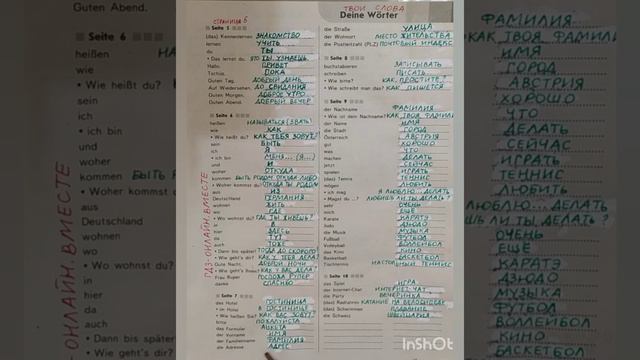 СТРАНИЦА 5
Seite 5
(das) Kennenlernen ЗНАКОМСТВО
lernen УЧИТЬ
du ТЫ
• Das lernst du: ЭТО ТЫ УЗНАЕШЬ
Hallo. ПРИВЕТ
Tschüs. ПОКА
Guten Tag. ДОБРЫЙ ДЕНЬ
Auf Wiedersehen. ДО СВИДАНИЯ
Guten Morgen. ДОБРОЕ УТРО
Guten Abend. ДОБРЫЙ ВЕЧЕР
Seite 6
heißen НАЗЫВАТЬСЯ (ЗВАТЬ)
wie КАК
• Wie heißt du? КАК ТЕБЯ ЗОВУТ?
sein БЫТЬ
ich Я
• ich bin МЕНЯ... (Я...)
und И
woher ОТКУДА
kommen БЫТЬ РОДОМ ОТКУДА-ЛИБО
• Woher kommst du? ОТКУДА ТЫ РОДОМ
aus ИЗ
Deutschland ГЕРМАНИЯ
wohnen ЖИТЬ
wo ГДЕ
• Wo wohnst du? ГДЕ ТЫ ЖИВЁШЬ?
in В
hier ЗДЕСЬ
da ТУТ
auch ТОЖЕ
• Dann bis später! ТОГДА ДО СКОРОГО
• Wie geht's dir? КАК У ТЕБЯ ДЕЛА?
Gute Nacht. ДОБРОЙ НОЧИ
• Wie geht's Ihnen? КАК У ВАС ДЕЛА?
Frau Ruper ГОСПОЖА РУПЕР
danke СПАСИБО
Seite 7
das Hotel ГОСТИНИЦА
• im Hotel В ГОСТИНИЦЕ
• Wie heißen Sie? КАК ВАС ЗОВУТ?
bitte ПОЖАЛУЙСТА
das Formular АНКЕТА
der Vorname ИМЯ
der Familienname ФАМИЛИЯ
die Adresse АДРЕС
DAЗ-ОНЛАЙН.ВМЕСТЕ
ТВОИ СЛОВА
Deine Wörter
die Straße УЛИЦА
der Wohnort МЕСТО ЖИТЕЛЬСТВА
die Postleitzahl (PLZ) ПОЧТОВЫЙ ИНДЕКС
Seite 8
buchstabieren ЗАПИСЫВАТЬ
schreiben ПИСАТЬ
• Wie bitte? КАК, ПРОСТИТЕ?
• Wie schreibt man das? КАК ПИШЕТСЯ
Seite 9
der Nachname ФАМИЛИЯ
• Wie ist dein Nachname? КАК ТВОЯ ФАМИЛИЯ
der Name ИМЯ
die Stadt ГОРОД
Österreich АВСТРИЯ
gut ХОРОШО
was ЧТО
machen ДЕЛАТЬ
jetzt СЕЙЧАС
spielen ИГРАТЬ
(das) Tennis ТЕННИС
mögen ЛЮБИТЬ
• ich mag Я ЛЮБЛЮ... ДЕЛАТЬ
• Magst du ...? ЛЮБИШЬ ЛИ ТЫ ДЕЛАТЬ?
sehr ОЧЕНЬ
noch ЕЩЁ
Karate КАРАТЭ
Judo ДЗЮДО
die Musik МУЗЫКА
Fußball ФУТБОЛ
Volleyball ВОЛЛЕЙБОЛ
das Kino КИНО
Basketball БАСКЕТБОЛ
Tischtennis НАСТОЛЬНЫЙ ТЕННИС
Seite 10
das Spiel ИГРА
der Internet-Chat ИНТЕРНЕТ ЧАТ
die Party ВЕЧЕРИНКА
(das) Radfahren КАТАНИЕ НА ВЕЛОСИПЕДЕ
(das) Schwimmen ПЛАВАНИЕ
die Schweiz ШВЕЙЦАРИЯ
Seite 6
heißen
wie
• Wie heißt du?
sein
ich
• ich bin
und
woher
kommen БЫТЬ Я
• Woher kommst du
aus
Deutschland
wohnen
wo
• Wo wohnst du?
in
hier
da
auch
• Dann bis später!
• Wie geht's dir?
-ОНЛАЙН.ВМЕСТЕ
ФАМИЛИЯ
КАК ТВОЯ ФАМИЛИЯ
ИМЯ
ГОРОД
АВСТРИЯ
ХОРОШО
ЧТО
ДЕЛАТЬ
СЕЙЧАС
ИГРАТЬ
ТЕННИС
ЛЮБИТЬ
ЛЮБЛЮ... ДЕЛАТЬ
ШЬ ЛИ ТЫ ДЕЛАТЬ?
ОЧЕНЬ
ЕЩЁ
КАРАТЭ
ДЗЮДО
МУЗЫКА
ФУТБОЛ
ВОЛЛЕЙБОЛ
КИНО
БАСКЕТБОЛ
InShOt